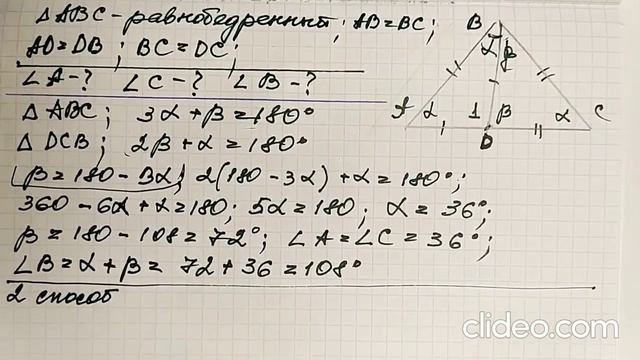 △ABC - равнобедренный; AB=BC;
AD=DB; BC=DC;
∠A-? ∠C-? ∠B-?
△ABC; 3α+β=180°
△DCB; 2β+α=180°
β=180-3α; 2(180-3α)+α=180°;
360-6α+α=180; 5α=180; α=36°;
β=180-108=72°; ∠A=∠C=36°;
∠B=α+β=72+36=108°
2 способ
B
α β
A α 1 β α C
D
clideo.com